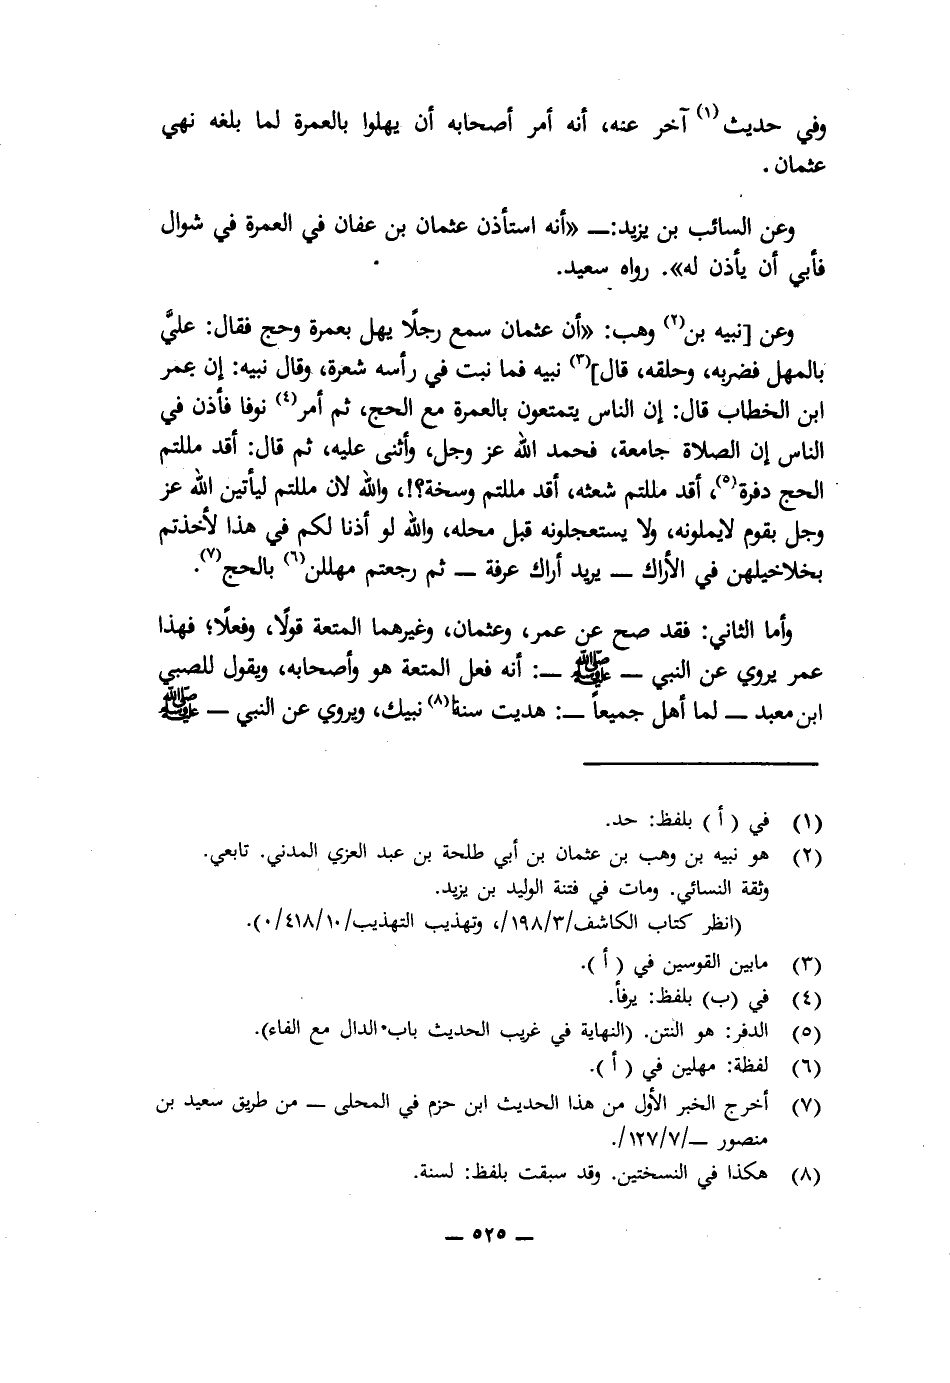 وفي حديث(١) آخر عنه، أنه أمر أصحابه أن يهلوا بالعمرة لما بلغه نهي
عثمان .
وعن السائب بن يزيد:ــ «أنه استأذن عثمان بن عفان في العمرة في شوال
فأبي أن يأذن له». رواه سعيد.
وعن [نبيه بن(٢) وهب: «أن عثمان سمع رجلًا يهل بعمرة وحج فقال: عليَّ
بالمهل فضربه، وحلقه، قال](٣) نبيه فما نبت في رأسه شعرة، وقال نبيه: إن عمر
ابن الخطاب قال: إن الناس يتمتعون بالعمرة مع الحج، ثم أمر(٤) نوفا فأذن في
الناس إن الصلاة جامعة، فحمد الله عز وجل، وأثنى عليه، ثم قال: أقد مللتم
الحج دفرة(٥)، أقد مللتم شعثه، أقد مللتم وسخة؟!، والله لان مللتم ليأتين الله عز
وجل بقوم لايملونه، ولا يستعجلونه قبل محله، والله لو أذنا لكم في هذا لأخذتم
بخلاخيلهن في الأراك ــ يريد أراك عرفة ــ ثم رجعتم مهللن(٦) بالحج(٧).
وأما الثاني: فقد صح عن عمر، وعثمان، وغيرهما المتعة قولًا، وفعلًا؛ فهذا
عمر يروي عن النبي ــ ﷺ ــ: أنه فعل المتعة هو وأصحابه، ويقول للصبي
ابن معبد ــ لما أهل جميعاً ــ: هديت سنة(٨) نبيك، ويروي عن النبي ــ ﷺ
(١) في ( أ ) بلفظ: حد.
(٢) هو نبيه بن وهب بن عثمان بن أبي طلحة بن عبد العزي المدني. تابعي.
وثقة النسائي. ومات في فتنة الوليد بن يزيد.
(انظر كتاب الكاشف/١٩٨/٣/، وتهذيب التهذيب/٤١٨/١٠/٠).
(٣) مابين القوسين في ( أ ).
(٤) في (ب) بلفظ: يرفأ.
(٥) الدفر: هو النتن. (النهاية في غريب الحديث باب الدال مع الفاء).
(٦) لفظة: مهلين في ( أ ).
(٧) أخرج الخبر الأول من هذا الحديث ابن حزم في المحلى ــ من طريق سعيد بن
منصور ــ/١٢٧/٧/.
(٨) هكذا في النسختين. وقد سبقت بلفظ: لسنة.
ــ ٥٢٥ ــ